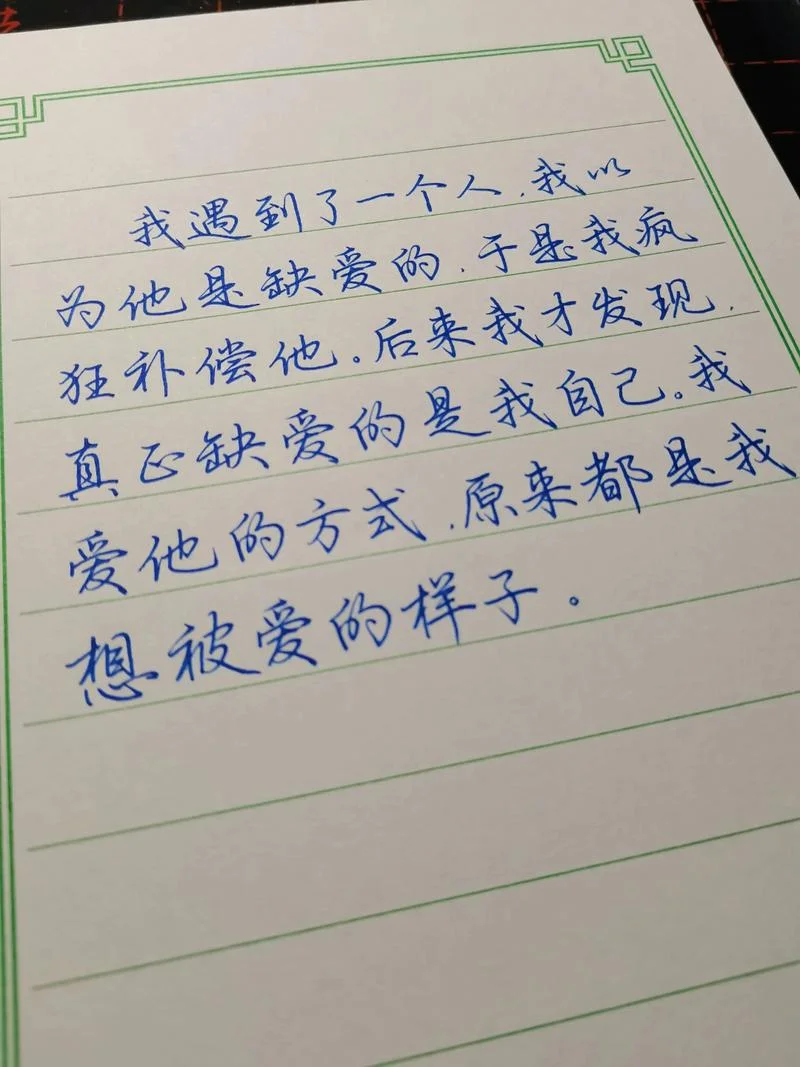 我遇到了一个人,我以
为他是缺爱的,于是我疯
狂补偿他。后来我才发现,
真正缺爱的是我自己。我
爱他的方式,原来都是我
想被爱的样子。